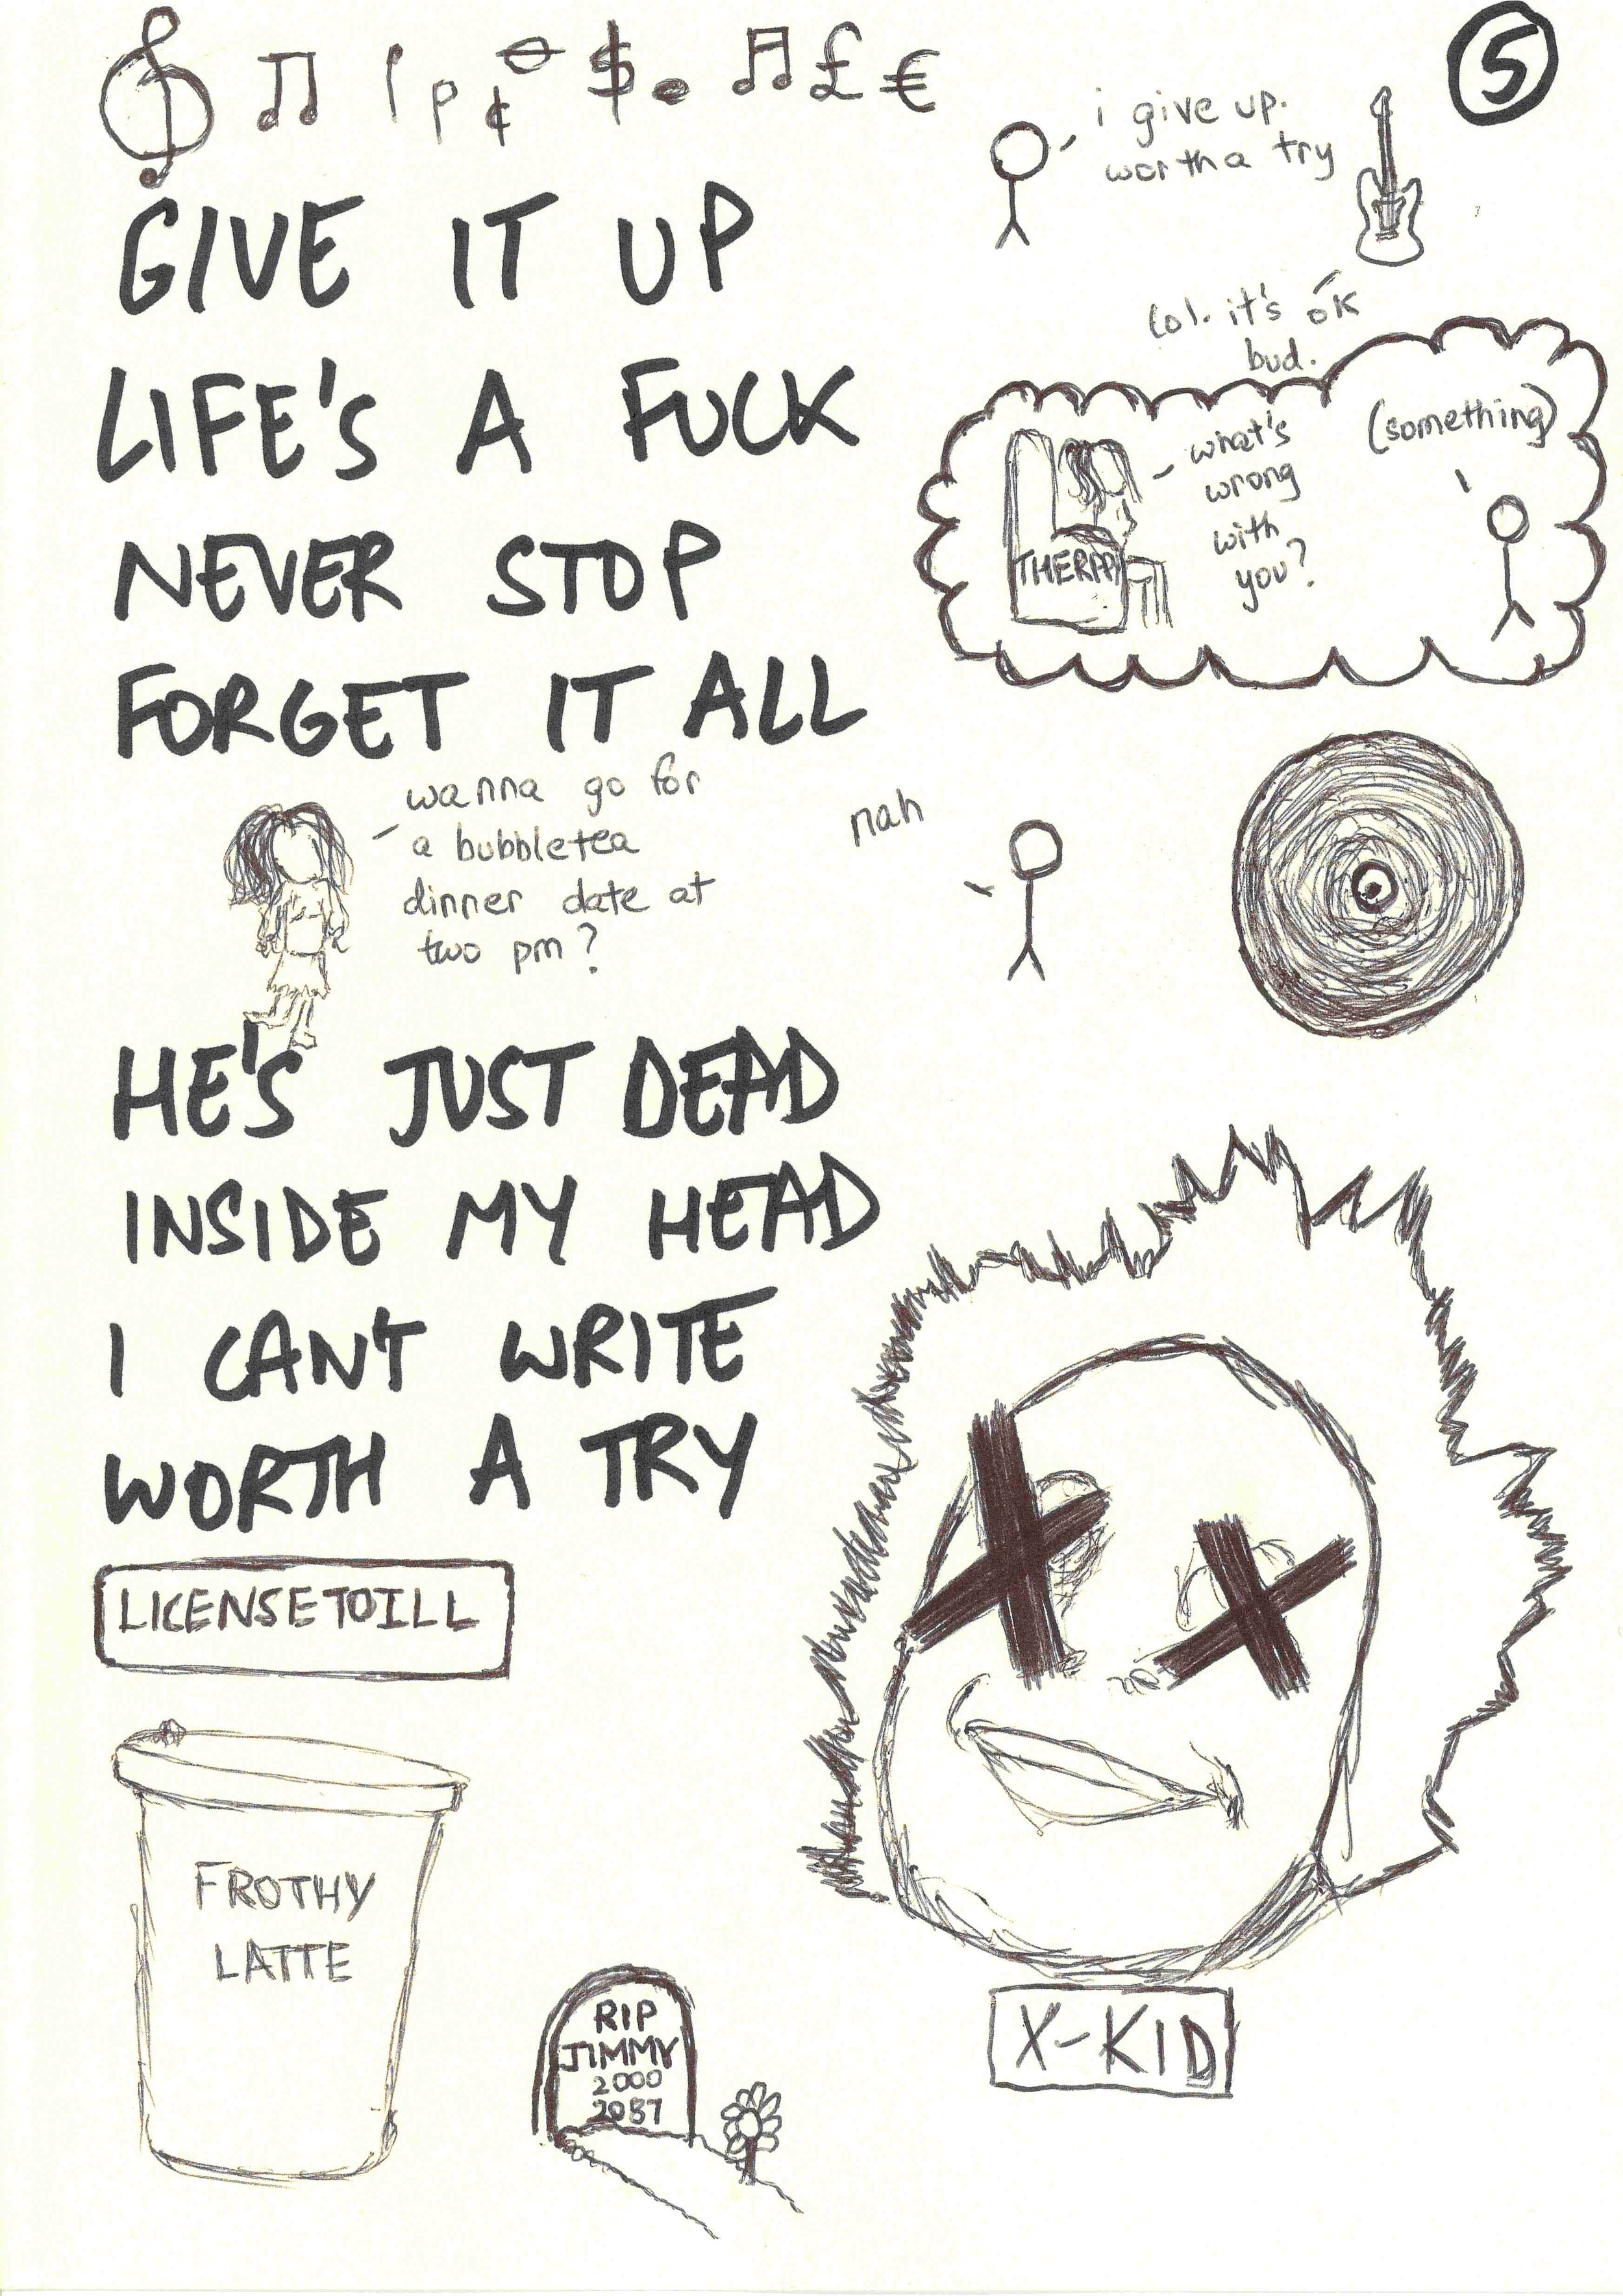 5
p ¢ $ £ €
i give up.
worth a try
GIVE IT UP
lol. it's ok
bud.
LIFE'S A FUCK
(something)
what's
wrong
with
you?
THERAPY
NEVER STOP
FORGET IT ALL
wanna go for
a bubbletea
dinner date at
two pm?
nah
HE'S JUST DEAD
INSIDE MY HEAD
I CAN'T WRITE
WORTH A TRY
LICENSETOILL
FROTHY
LATTE
RIP
JIMMY
2000
2087
X-KID